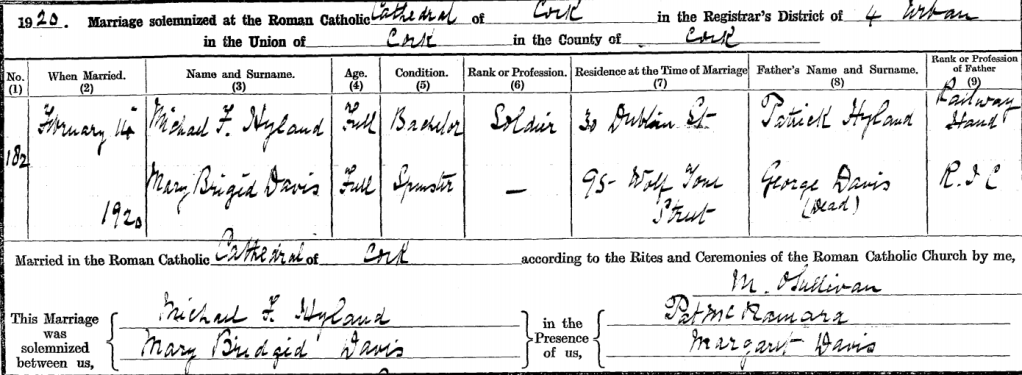 1920. Marriage solemnized at the Roman Catholic Cathedral of Cork in the Registrar's District of 4 Urban
in the Union of Cork in the County of Cork
No. (1) When Married. (2) Name and Surname. (3) Age. (4) Condition. (5) Rank or Profession. (6) Residence at the Time of Marriage (7) Father's Name and Surname. (8) Rank or Profession of Father (9)
182 February 14 Michael F. Hyland Full Bachelor Soldier 30 Dublin St Patrick Hyland Railway Hand
1920 Mary Brigid Davis Full Spinster — 95 Wolf Tone Street George Davis (Dead) R.I.C
Married in the Roman Catholic Cathedral of Cork according to the Rites and Ceremonies of the Roman Catholic Church by me,
M. O'Sullivan
This Marriage was solemnized between us, Michael F. Hyland in the Presence of us, Pat McNamara
Mary Bridgid Davis Margaret Davis